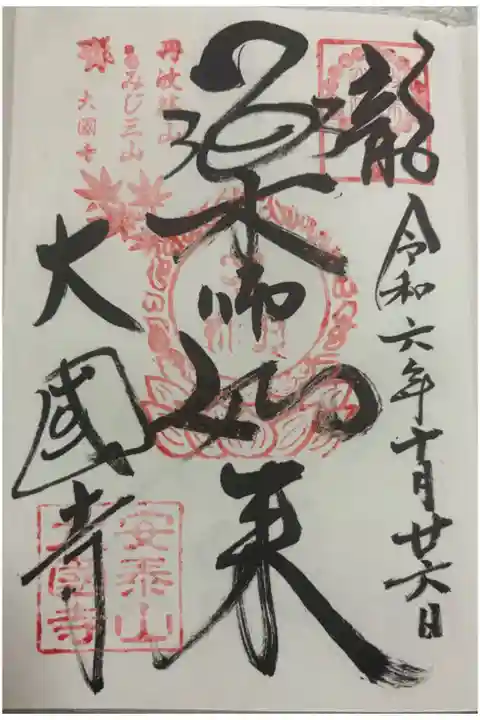 瀧
令和六年十月廿六日
薬師如来
丹波篠山
もみじ三山
大國寺
大國寺
安泰山
大國寺